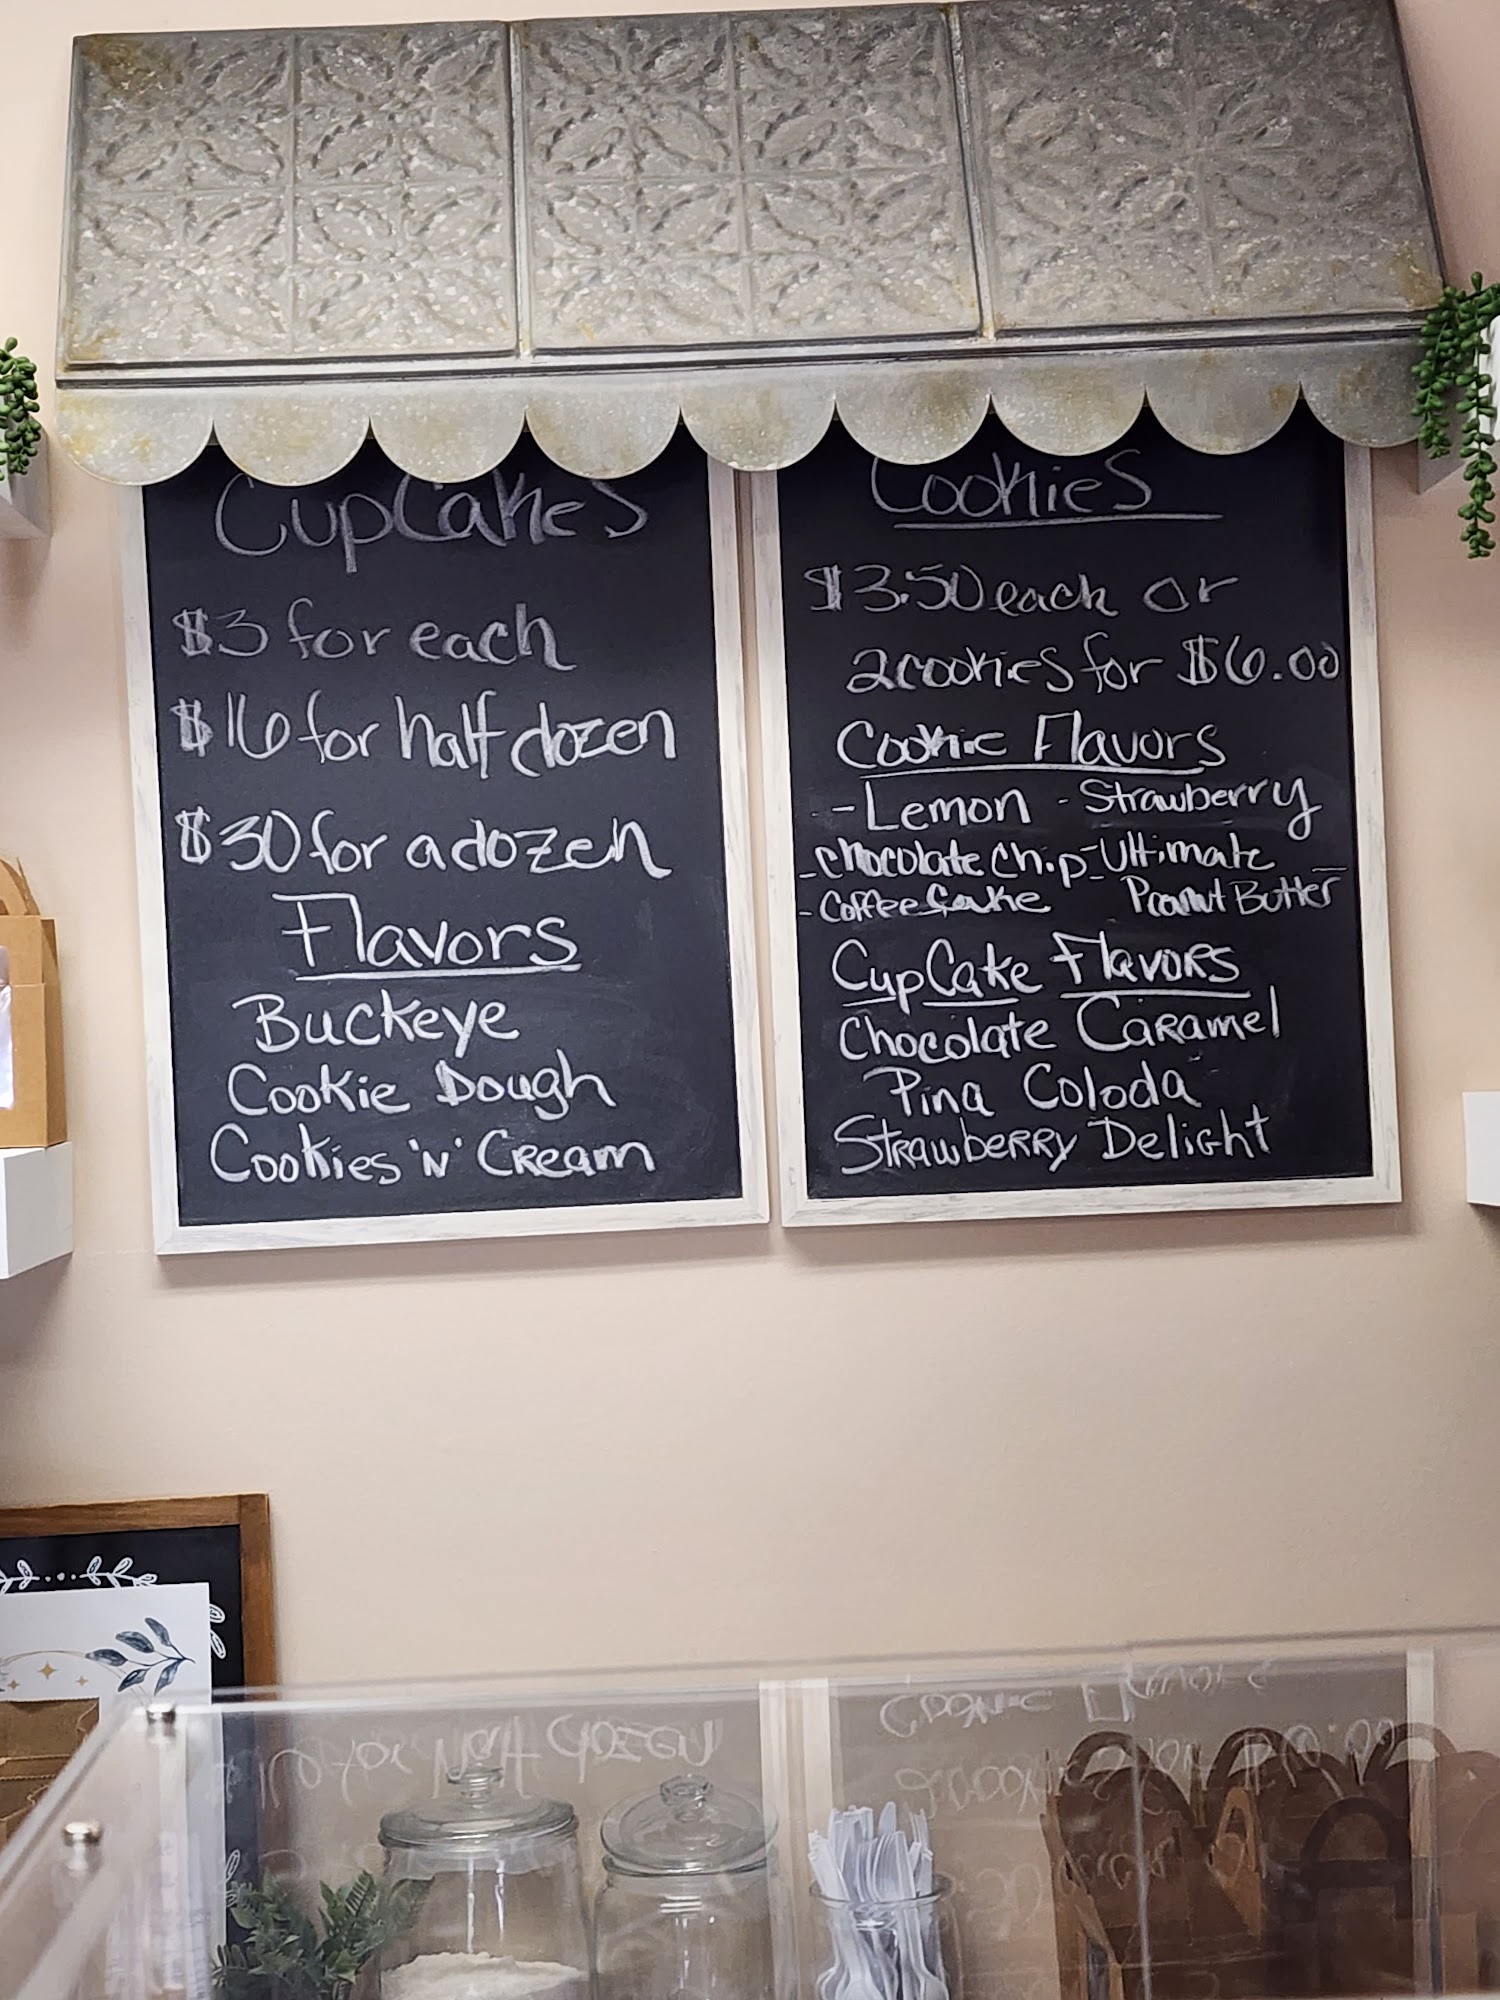 CupCakes
$3 for each
$16 for half dozen
$30 for a dozen
Flavors
Buckeye
Cookie Dough
Cookies 'N' Cream
Cookies
$3.50 each or
2 cookies for $6.00
Cookie Flavors
- Lemon - Strawberry
- Chocolate Chip - Ultimate
- Coffee Cake Peanut Butter
CupCake Flavors
Chocolate Caramel
Pina Coloda
Strawberry Delight